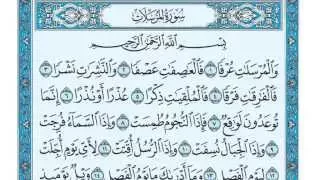 سُورَةُ المُرْسَلَات
بِسْمِ اللَّهِ الرَّحْمَٰنِ الرَّحِيمِ
وَالْمُرْسَلَاتِ عُرْفًا ۝١ فَالْعَاصِفَاتِ عَصْفًا ۝٢ وَالنَّاشِرَاتِ نَشْرًا ۝٣
فَالْفَارِقَاتِ فَرْقًا ۝٤ فَالْمُلْقِيَاتِ ذِكْرًا ۝٥ عُذْرًا أَوْ نُذْرًا ۝٦ إِنَّمَا
تُوعَدُونَ لَوَاقِعٌ ۝٧ فَإِذَا النُّجُومُ طُمِسَتْ ۝٨ وَإِذَا السَّمَاءُ فُرِجَتْ
۝٩ وَإِذَا الْجِبَالُ نُسِفَتْ ۝١٠ وَإِذَا الرُّسُلُ أُقِّتَتْ ۝١١ لِأَيِّ يَوْمٍ أُجِّلَتْ
۝١٢ لِيَوْمِ الْفَصْلِ ۝١٣ وَمَا أَدْرَاكَ مَا يَوْمُ الْفَصْلِ ۝١٤ وَيْلٌ يَوْمَئِذٍ